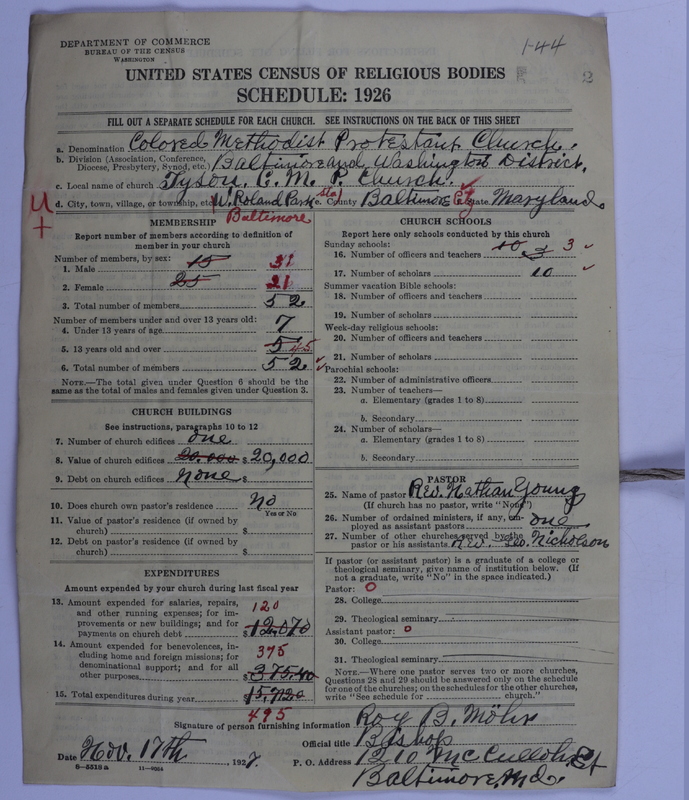 DEPARTMENT OF COMMERCE
BUREAU OF THE CENSUS
WASHINGTON
1-44
2
UNITED STATES CENSUS OF RELIGIOUS BODIES
SCHEDULE: 1926
FILL OUT A SEPARATE SCHEDULE FOR EACH CHURCH. SEE INSTRUCTIONS ON THE BACK OF THIS SHEET
a. Denomination Colored Methodist Protestant Church.
b. Division (Association, Conference, Diocese, Presbytery, Synod, etc.) Baltimore and Washington District.
c. Local name of church Tyson. C. M. P. Church.
d. City, town, village, or township, etc. W. Roland Park Sta e. County Baltimore City State Maryland.
Baltimore
U
+
MEMBERSHIP
Report number of members according to definition of
member in your church
Number of members, by sex:
1. Male 15 31
2. Female 25 21
3. Total number of members 52
Number of members under and over 13 years old:
4. Under 13 years of age 7
5. 13 years old and over 5 45
6. Total number of members 52
NOTE.—The total given under Question 6 should be the
same as the total of males and females given under Question 3.
CHURCH BUILDINGS
See instructions, paragraphs 10 to 12
7. Number of church edifices one
8. Value of church edifices 20.000 $ 20,000
9. Debt on church edifices none $
10. Does church own pastor's residence No
Yes or No
11. Value of pastor's residence (if owned by
church) $
12. Debt on pastor's residence (if owned by
church) $
EXPENDITURES
Amount expended by your church during last fiscal year
13. Amount expended for salaries, repairs,
and other running expenses; for im-
provements or new buildings; and for
payments on church debt 120 $
14. Amount expended for benevolences, in-
cluding home and foreign missions; for
denominational support; and for all
other purposes 375 $ 375.40
15. Total expenditures during year $
495
CHURCH SCHOOLS
Report here only schools conducted by this church
Sunday schools:
16. Number of officers and teachers 10 3 3
17. Number of scholars 10
Summer vacation Bible schools:
18. Number of officers and teachers
19. Number of scholars
Week-day religious schools:
20. Number of officers and teachers
21. Number of scholars
Parochial schools:
22. Number of administrative officers
23. Number of teachers—
a. Elementary (grades 1 to 8)
b. Secondary
24. Number of scholars—
a. Elementary (grades 1 to 8)
b. Secondary
PASTOR
25. Name of pastor Rev. Nathan Young
(If church has no pastor, write "None")
26. Number of ordained ministers, if any, em-
ployed as assistant pastors one
27. Number of other churches served by the
pastor or his assistants Rev. Geo. Nicholson
If pastor (or assistant pastor) is a graduate of a college or
theological seminary, give name of institution below. (If
not a graduate, write "No" in the space indicated.)
Pastor: 0
28. College
29. Theological seminary
Assistant pastor: 0
30. College
31. Theological seminary
NOTE.—Where one pastor serves two or more churches,
Questions 28 and 29 should be answered only on the schedule
for one of the churches; on the schedules for the other churches,
write "See schedule for church."
Signature of person furnishing information Roy B. Möhr
Official title Bishop
Date Nov. 17th, 1927. P. O. Address 1210 McCulloh St
Baltimore, Md.
6—5518a 11—9054